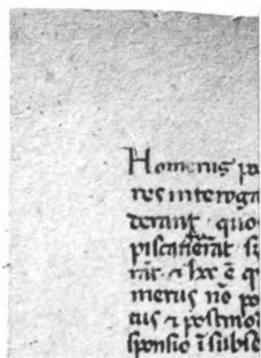 Homerus pa
res interoga
derant quo
piscatierāt si
rāt ⁊ hec ē q
merus nō po
tus ⁊ postmo
sponsio ī subse